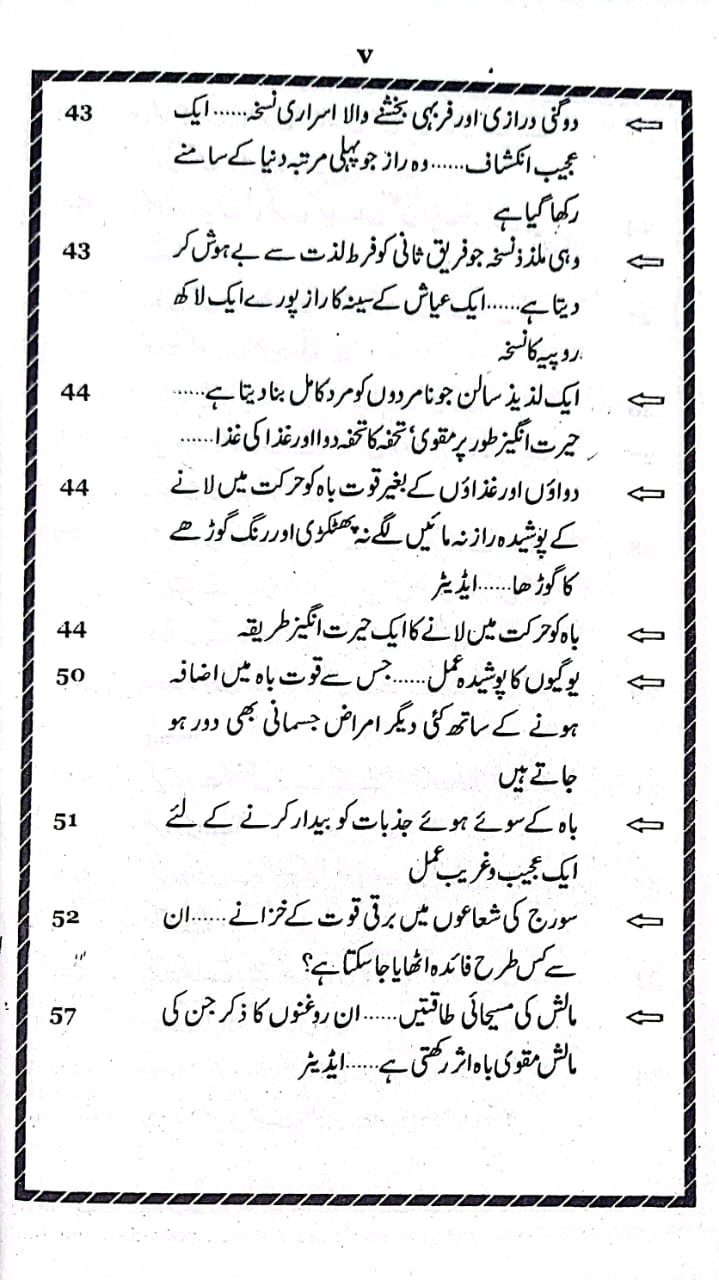 v
⇦ دوگنی درازی اور فربہی بخشنے والا اسراری نسخہ...... ایک 43
عجیب انکشاف......وہ راز جو پہلی مرتبہ دنیا کے سامنے
رکھا گیا ہے
⇦ وہی ملذذ نسخہ جو فریق ثانی کو فرط لذت سے بے ہوش کر 43
دیتا ہے......ایک عیاش کے سینہ کا راز پورے ایک لاکھ
روپیہ کا نسخہ
⇦ ایک لذیذ سالن جو نامردوں کو مرد کامل بنا دیتا ہے...... 44
حیرت انگیز طور پر مقوی' تحفہ کا تحفہ دوا اور غذا کی غذا......
⇦ دواؤں اور غذاؤں کے بغیر قوت باہ کو حرکت میں لانے 44
کے پوشیدہ راز نہ مائیں لگے نہ پھٹکڑی اور رنگ گوڑھے
کا گوڑھا......ایڈیٹر
⇦ باہ کو حرکت میں لانے کا ایک حیرت انگیز طریقہ 44
⇦ یوگیوں کا پوشیدہ عمل......جس سے قوت باہ میں اضافہ 50
ہونے کے ساتھ کئی دیگر امراض جسمانی بھی دور ہو
جاتے ہیں
⇦ باہ کے سوئے ہوئے جذبات کو بیدار کرنے کے لئے 51
ایک عجیب و غریب عمل
⇦ سورج کی شعاعوں میں برقی قوت کے خزانے......ان 52
سے کس طرح فائدہ اٹھایا جا سکتا ہے؟
⇦ مالش کی مسیحائی طاقتیں......ان روغنوں کا ذکر جن کی 57
مالش مقوی باہ اثر رکھتی ہے......ایڈیٹر